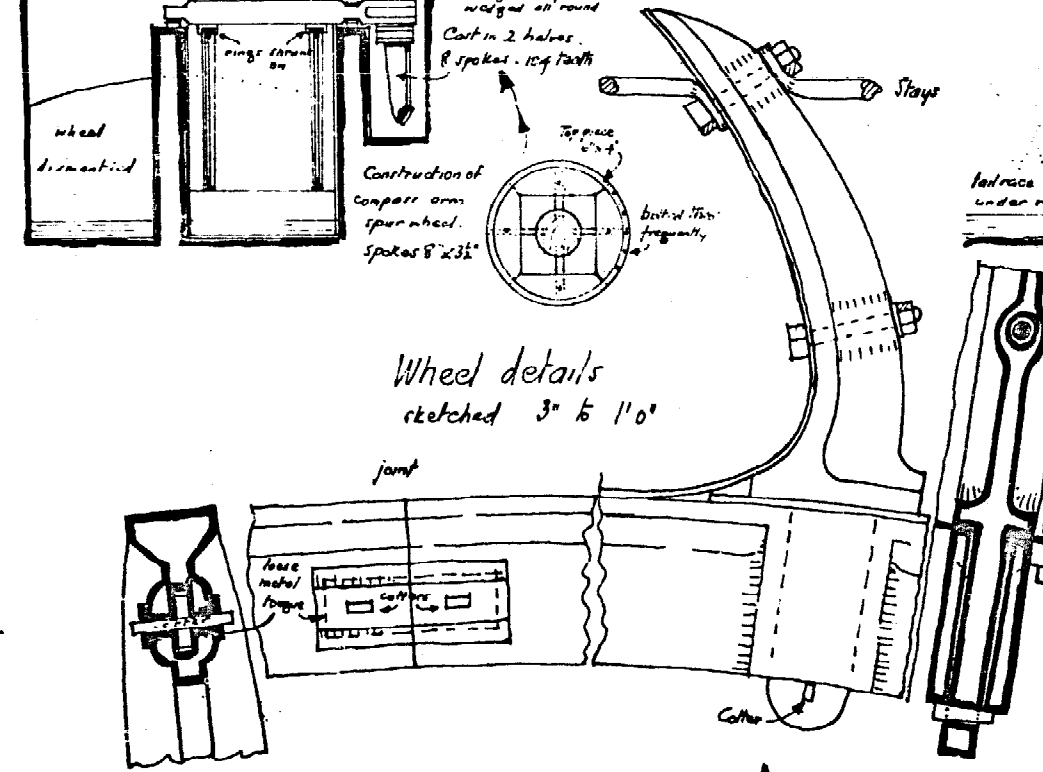 wedged all round
Cast in 2 halves.
8 spokes. 104 teeth
rings shrunk
on
wheel
dismantled
Stays
Top piece
Construction of
compass arm
spur wheel.
spokes 8" x 3½"
frequently
tailrace
under
Wheel details
sketched 3" to 1'0"
joint
loose
metal
tongue
cotters
Cotter